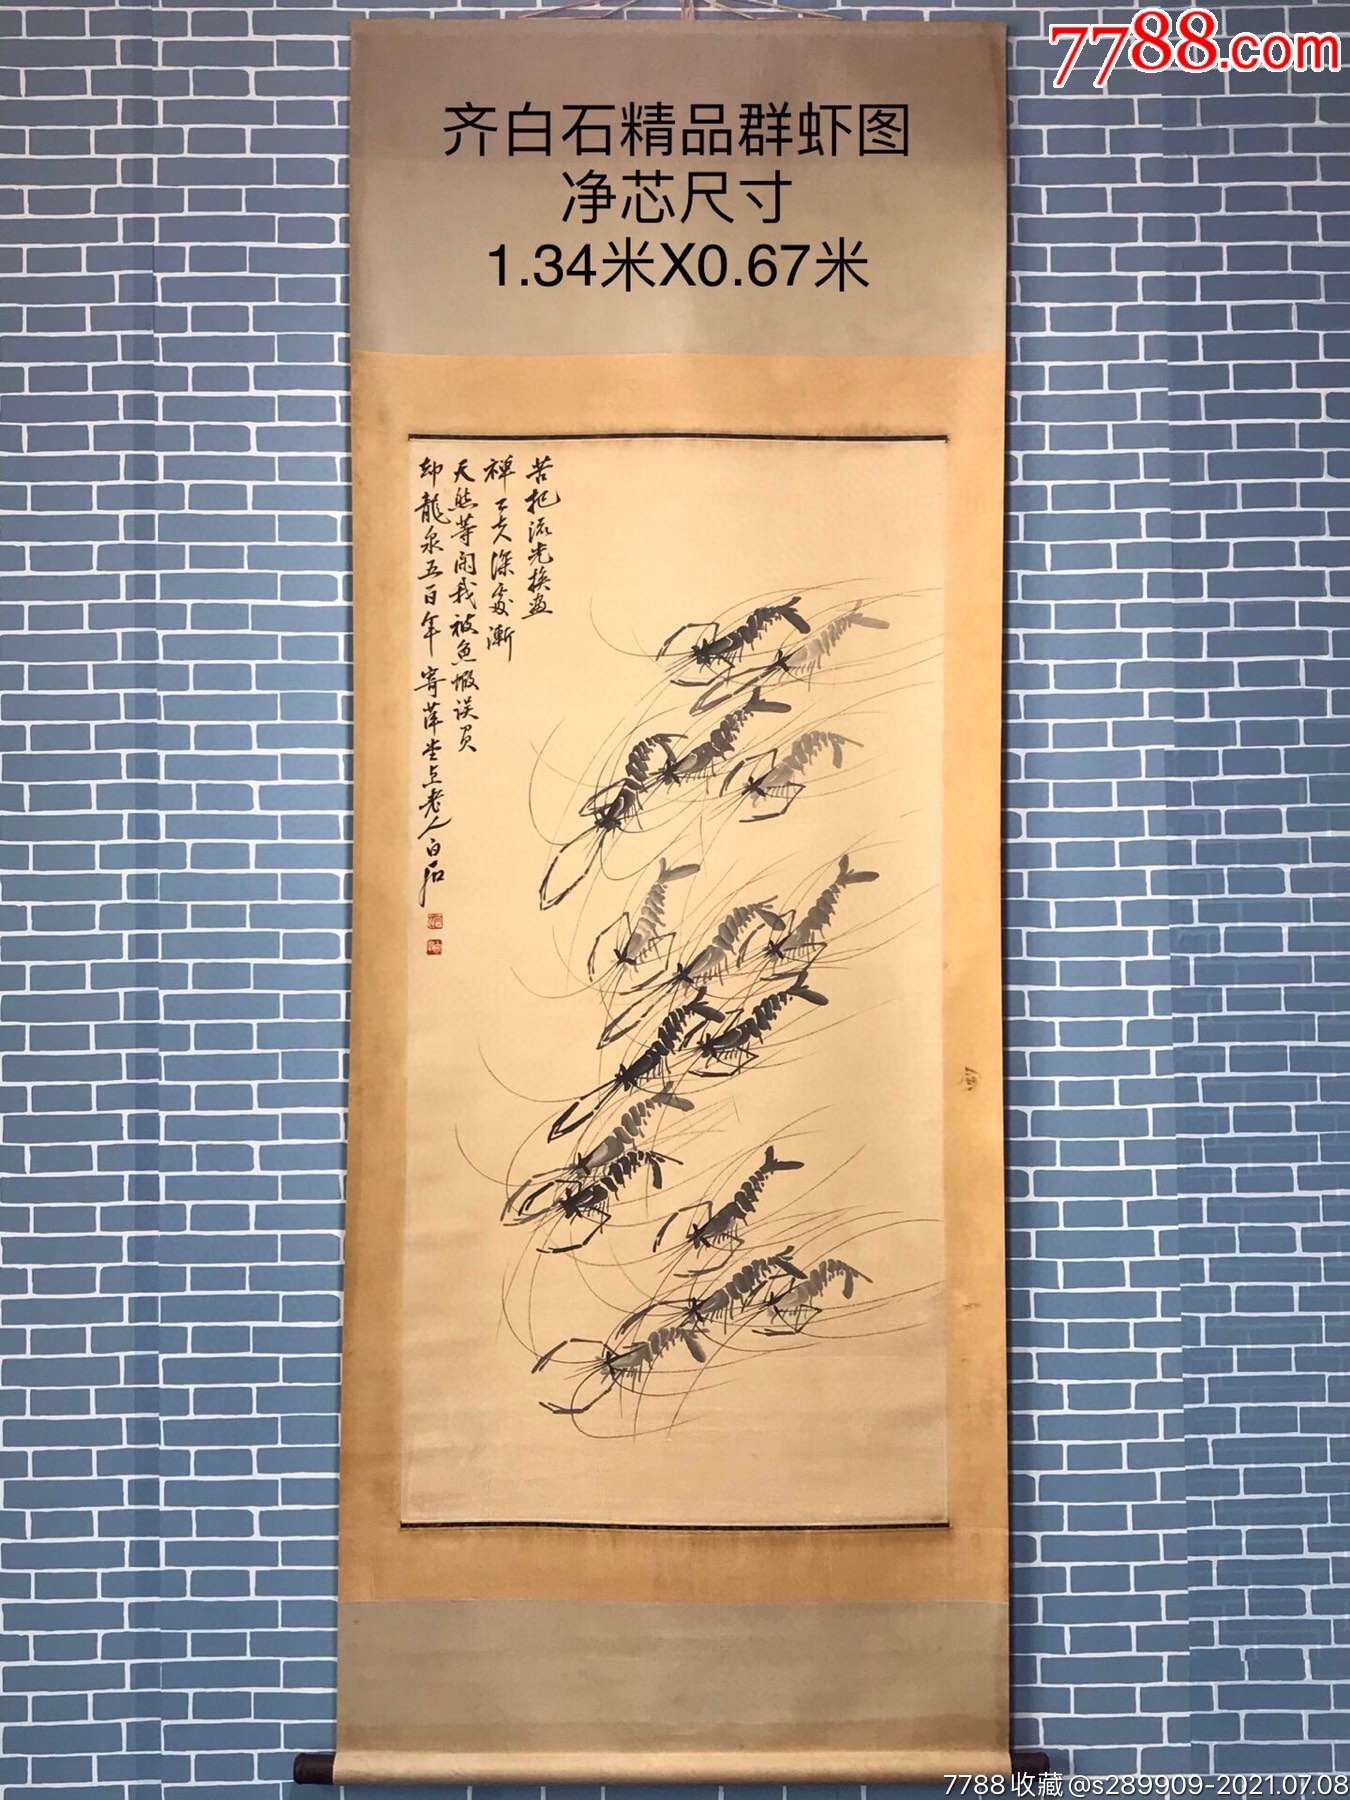 7788.com
齐白石精品群虾图
净芯尺寸
1.34米X0.67米
苦把流光换画
禅工夫深处渐
天然等闲我被鱼虾误负
却龍泉五百年 寄萍堂上老人白石
7788收藏@s289909-2021.07.08